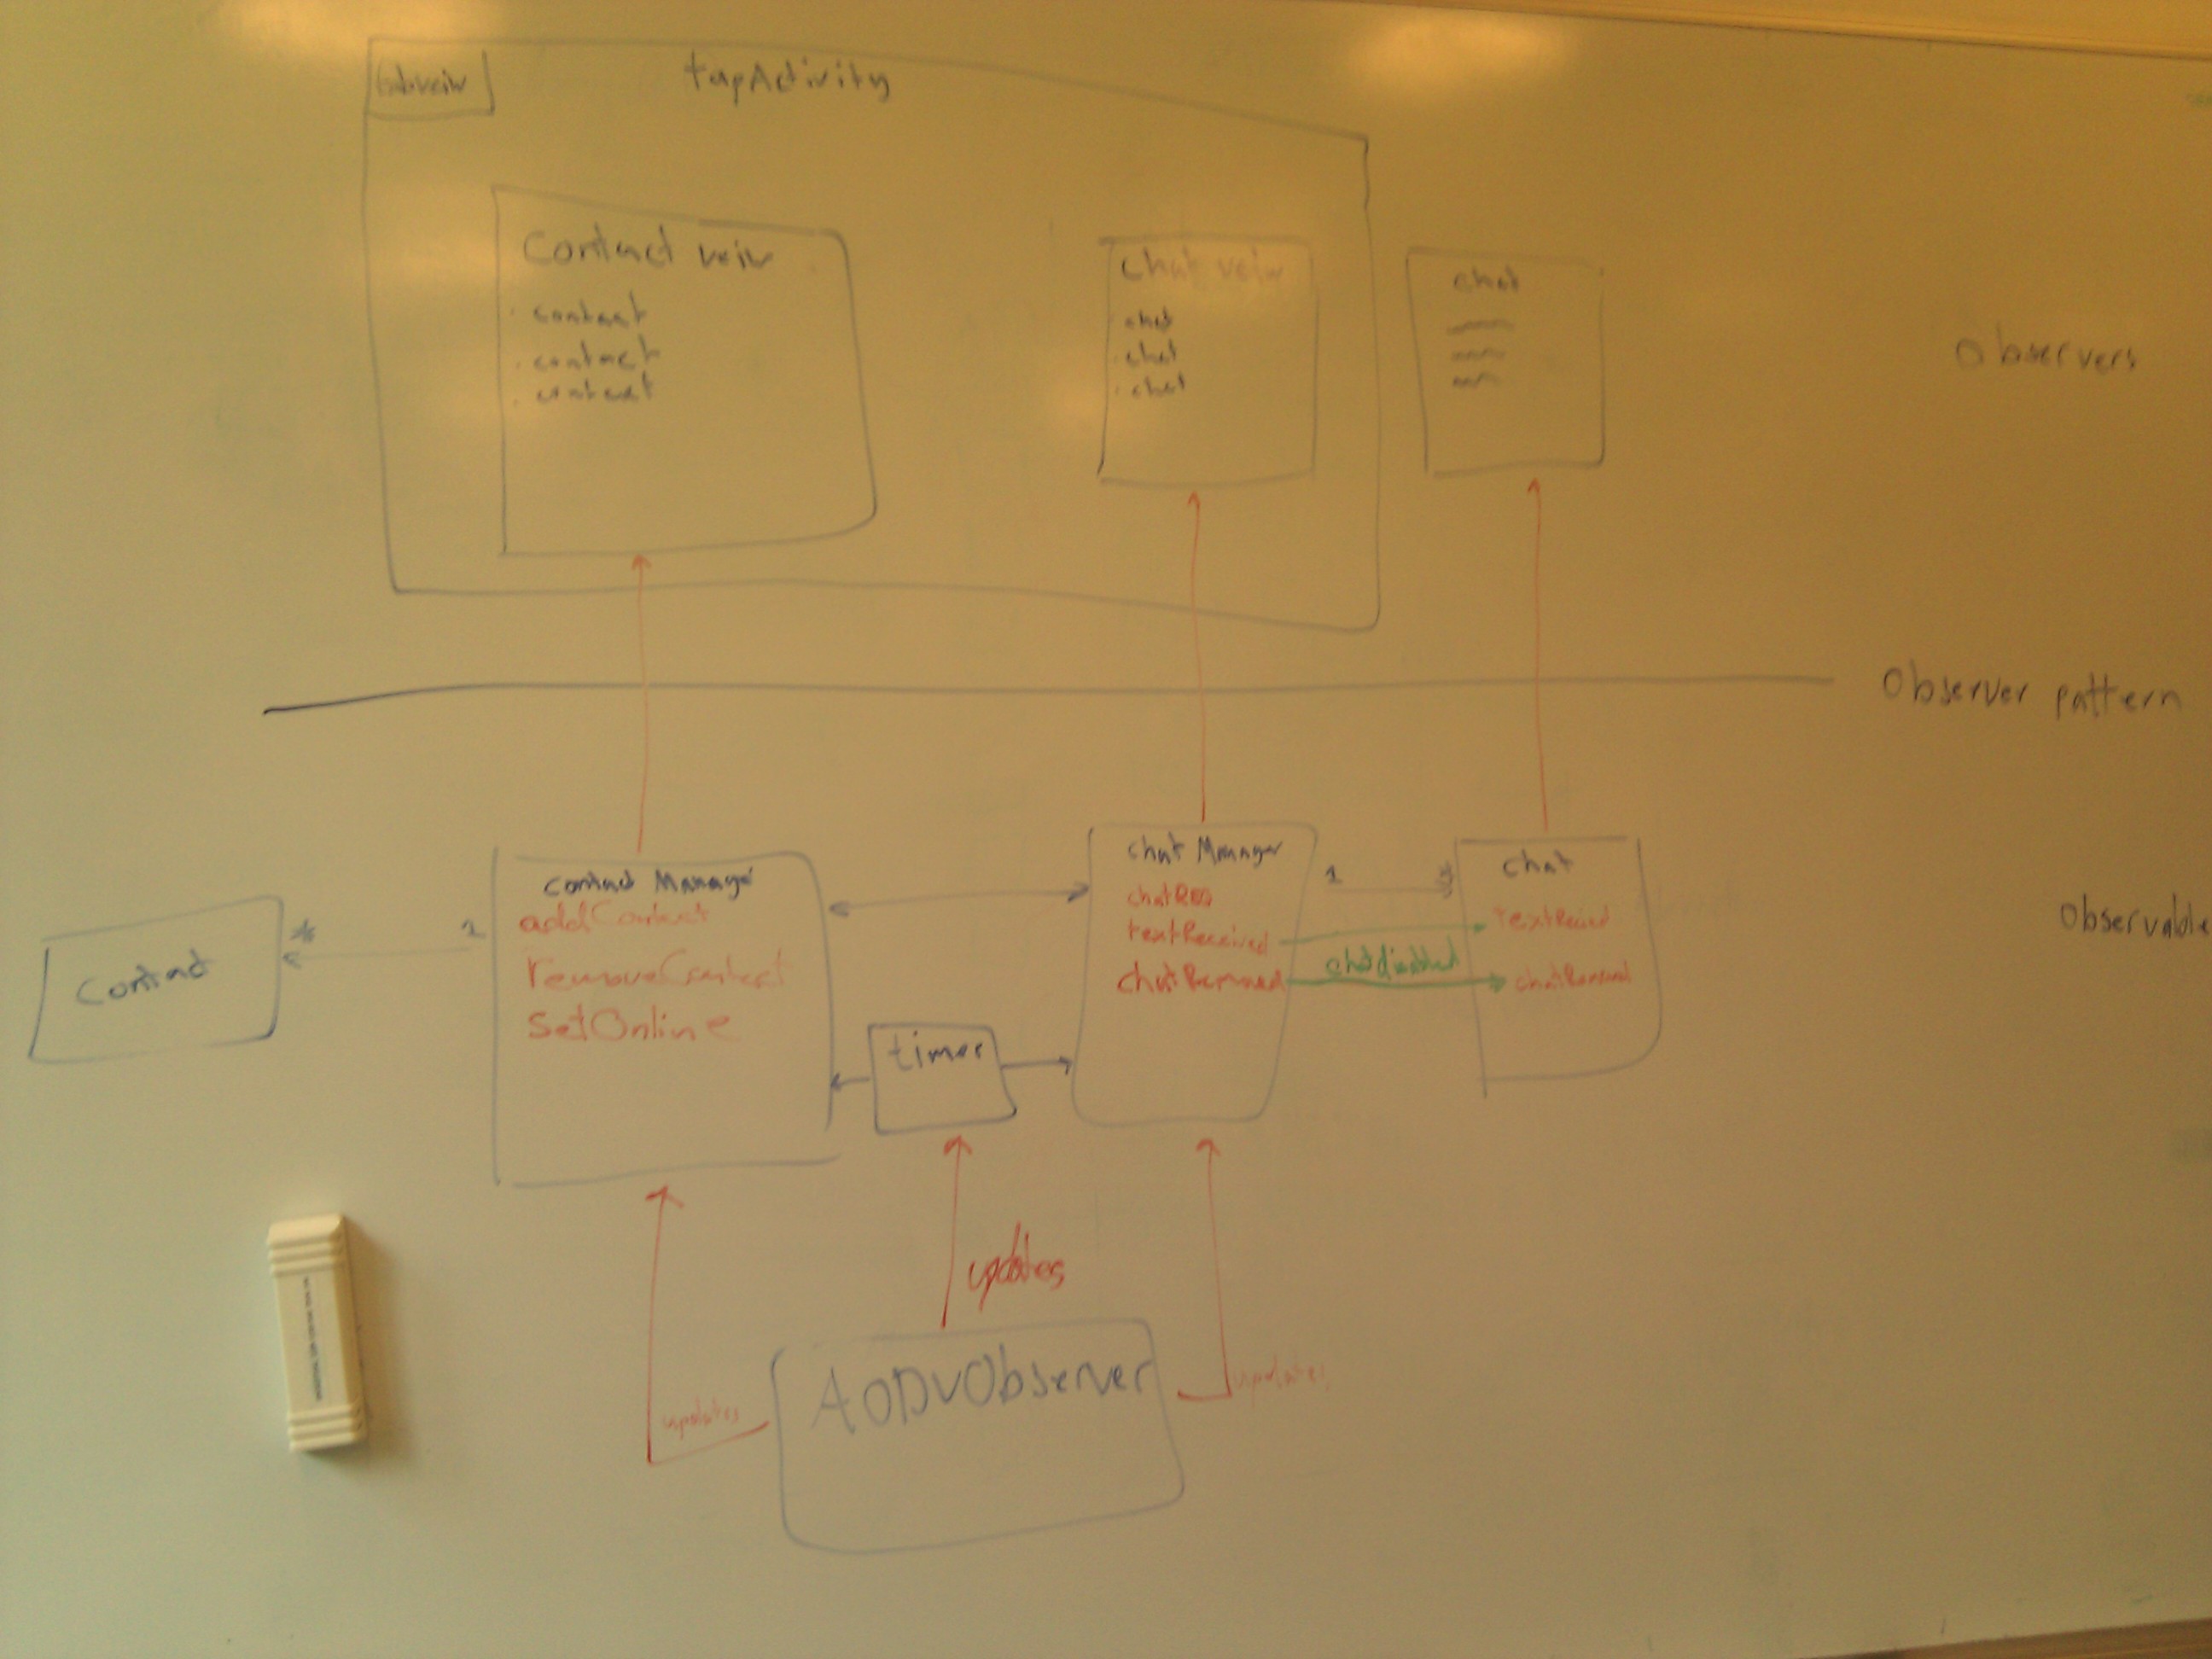 tabveiw
tapActivity
Contact veiw
. contact
. contact
. contact
Chat veiw
. chat
. chat
. chat
chat
Observers
Observer pattern
Observable
Contact
*
1
contact Manager
addContact
removeContact
setOnline
timer
chat Manager
chatReq
textReceived
chatRemoved
1
*
chatdisabled
chat
textReceived
chatRemoved
updates
updates
updates
AODVObserver